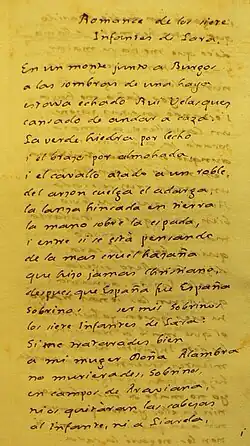 Romance de los siete
Infantes de Lara.
En un monte junto a Burgos
a las sombras de una haya
estava echado Rui Velasquez
cansado de andar a caza
La verde hiedra por lecho
i el brazo por almohada,
i el cavallo atado a un roble,
del arzon cuelga el adarga
la lanza hincada en tierra
la mano sobre la espada,
i entre si se está pensando
de la mas cruel hazaña
que hizo jamas Christiano,
despues que España fue España
Sobrinos, mis Sobrinos
los siete Infantes de Lara:
Si me tratarades bien
a mi muger Doña Alambra
no murierades, Sobrinos,
en campos de Araviana,
ni os quitaran las cabezas
al Infante, ni á